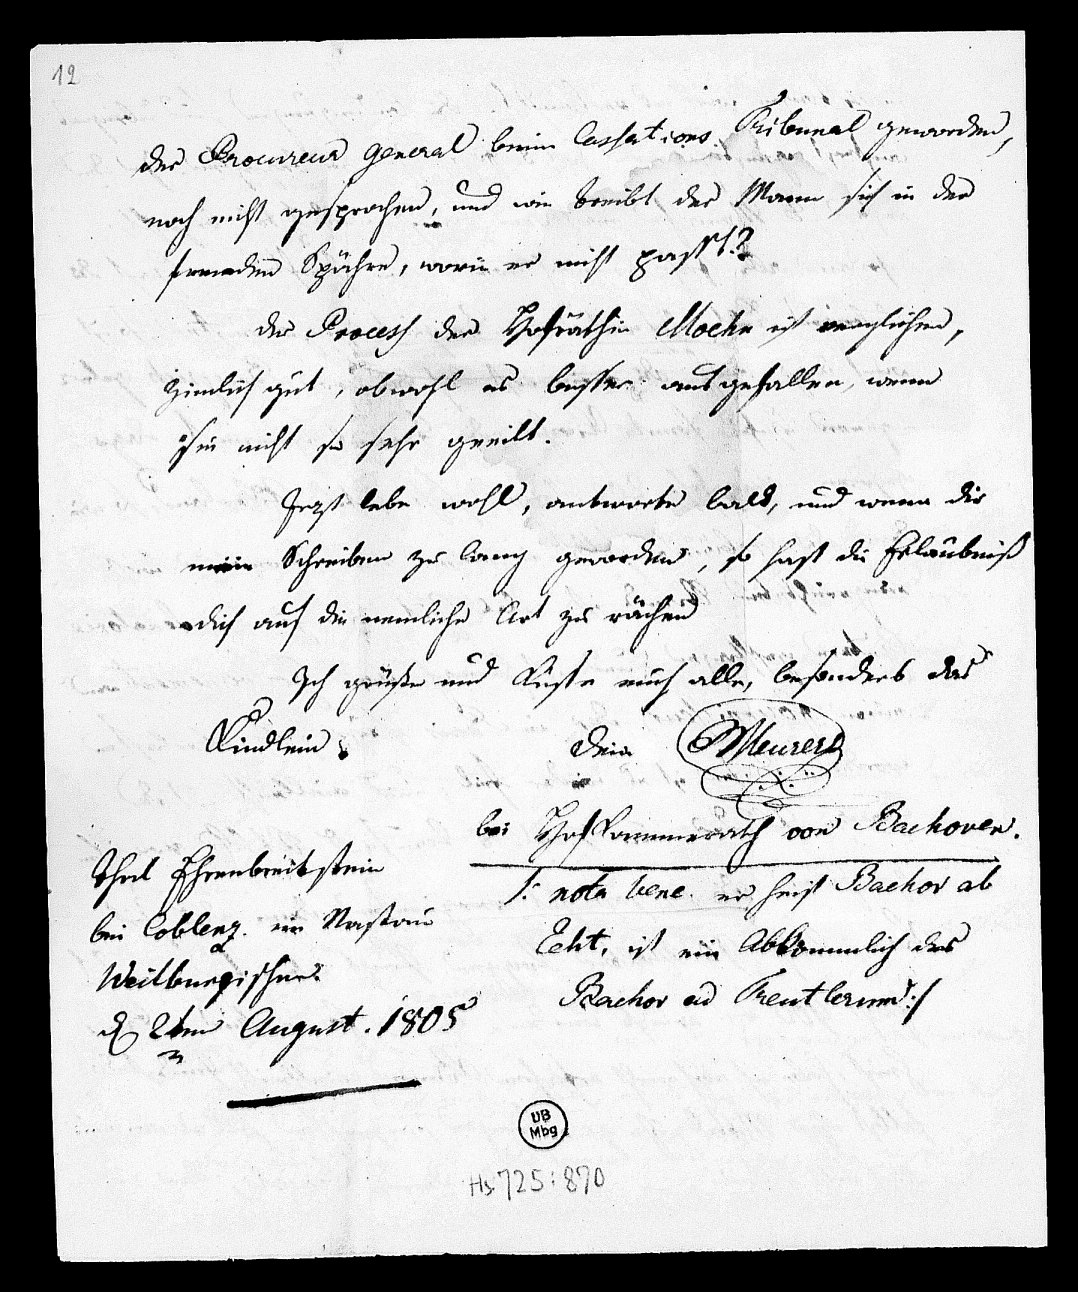 12
der Procureur General beim Cassations Tribunal geworden,
noch nicht gesprochen, und wie treibt der Mann sich in der
fremden Spähre, worin er nicht passt?
Der Process der Hofräthin Moehn ist verglichen,
zimlich gut, obwohl es besser ausgefallen, wenn
sie nicht so sehr geeilt.
Jezt lebe wohl, antworte bald, und wenn dir
mein Schreiben zu lang geworden, so hast du Erlaubniß
dich auf die nemliche Art zu rächen
Ich grüße und küsse euch alle, besonders das
Kindlein.
Dein Meurers
bei Hofkammerrath von Bachoven.
/: nota bene. er heist Bachov ab
Echt, ist ein Abkömmlich des
Bachov ad Treutlerum :/
Thal Ehrenbreitstein
bei Coblenz. im Nassau
Weilburgischen
d 2ten August. 1805
UB
Mbg
Hs 725:870